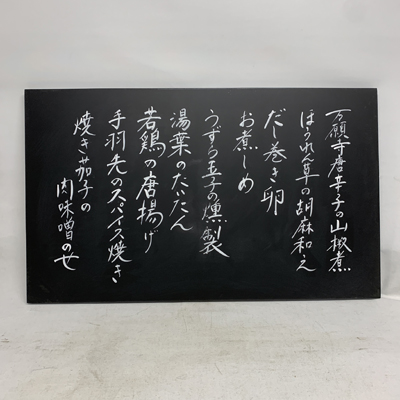 万願寺唐辛子の山椒煮
ほうれん草の胡麻和え
だし巻き卵
お煮しめ
うずら玉子の燻製
湯葉のたいたん
若鶏の唐揚げ
手羽先のスパイス焼き
焼き茄子の
肉味噌のせ